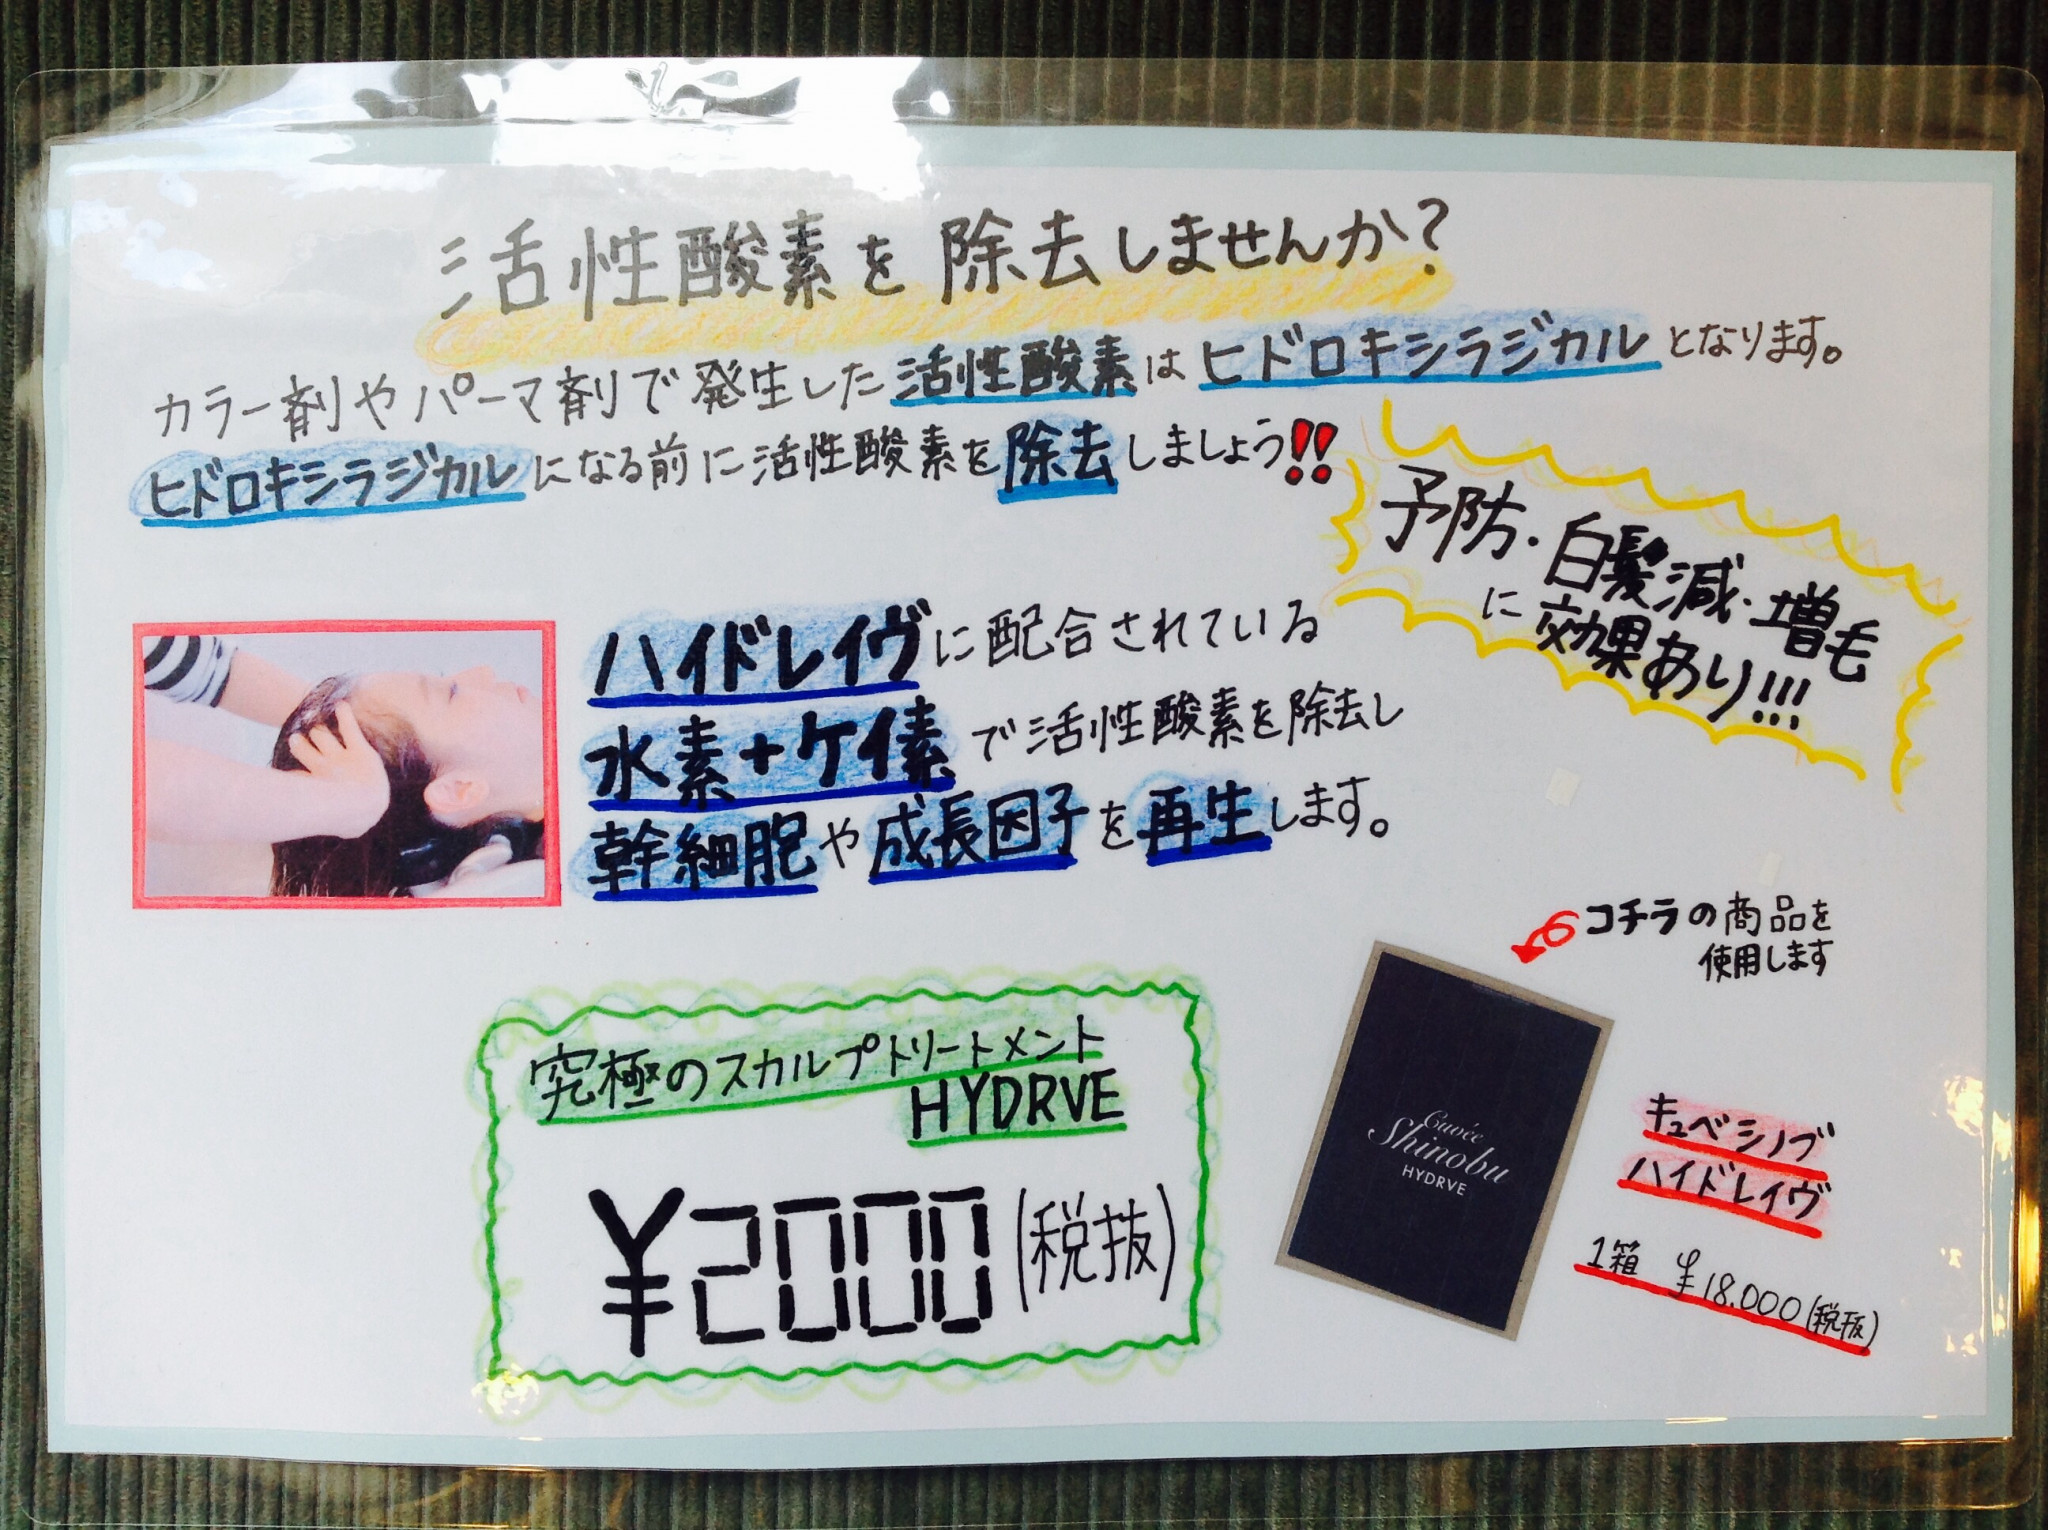 活性酸素を除去しませんか？
カラー剤やパーマ剤で発生した活性酸素はヒドロキシラジカルとなります。
ヒドロキシラジカルになる前に活性酸素を除去しましょう!!
予防・白髪減・増毛
に効果あり!!!
ハイドレイヴに配合されている
水素+ケイ素で活性酸素を除去し
幹細胞や成長因子を再生します。
コチラの商品を
使用します
究極のスカルプトリートメント
HYDRVE
¥2000(税抜)
Cuvée
Shinobu
HYDRVE
キュベシノブ
ハイドレイヴ
1箱 ¥18.000(税抜)